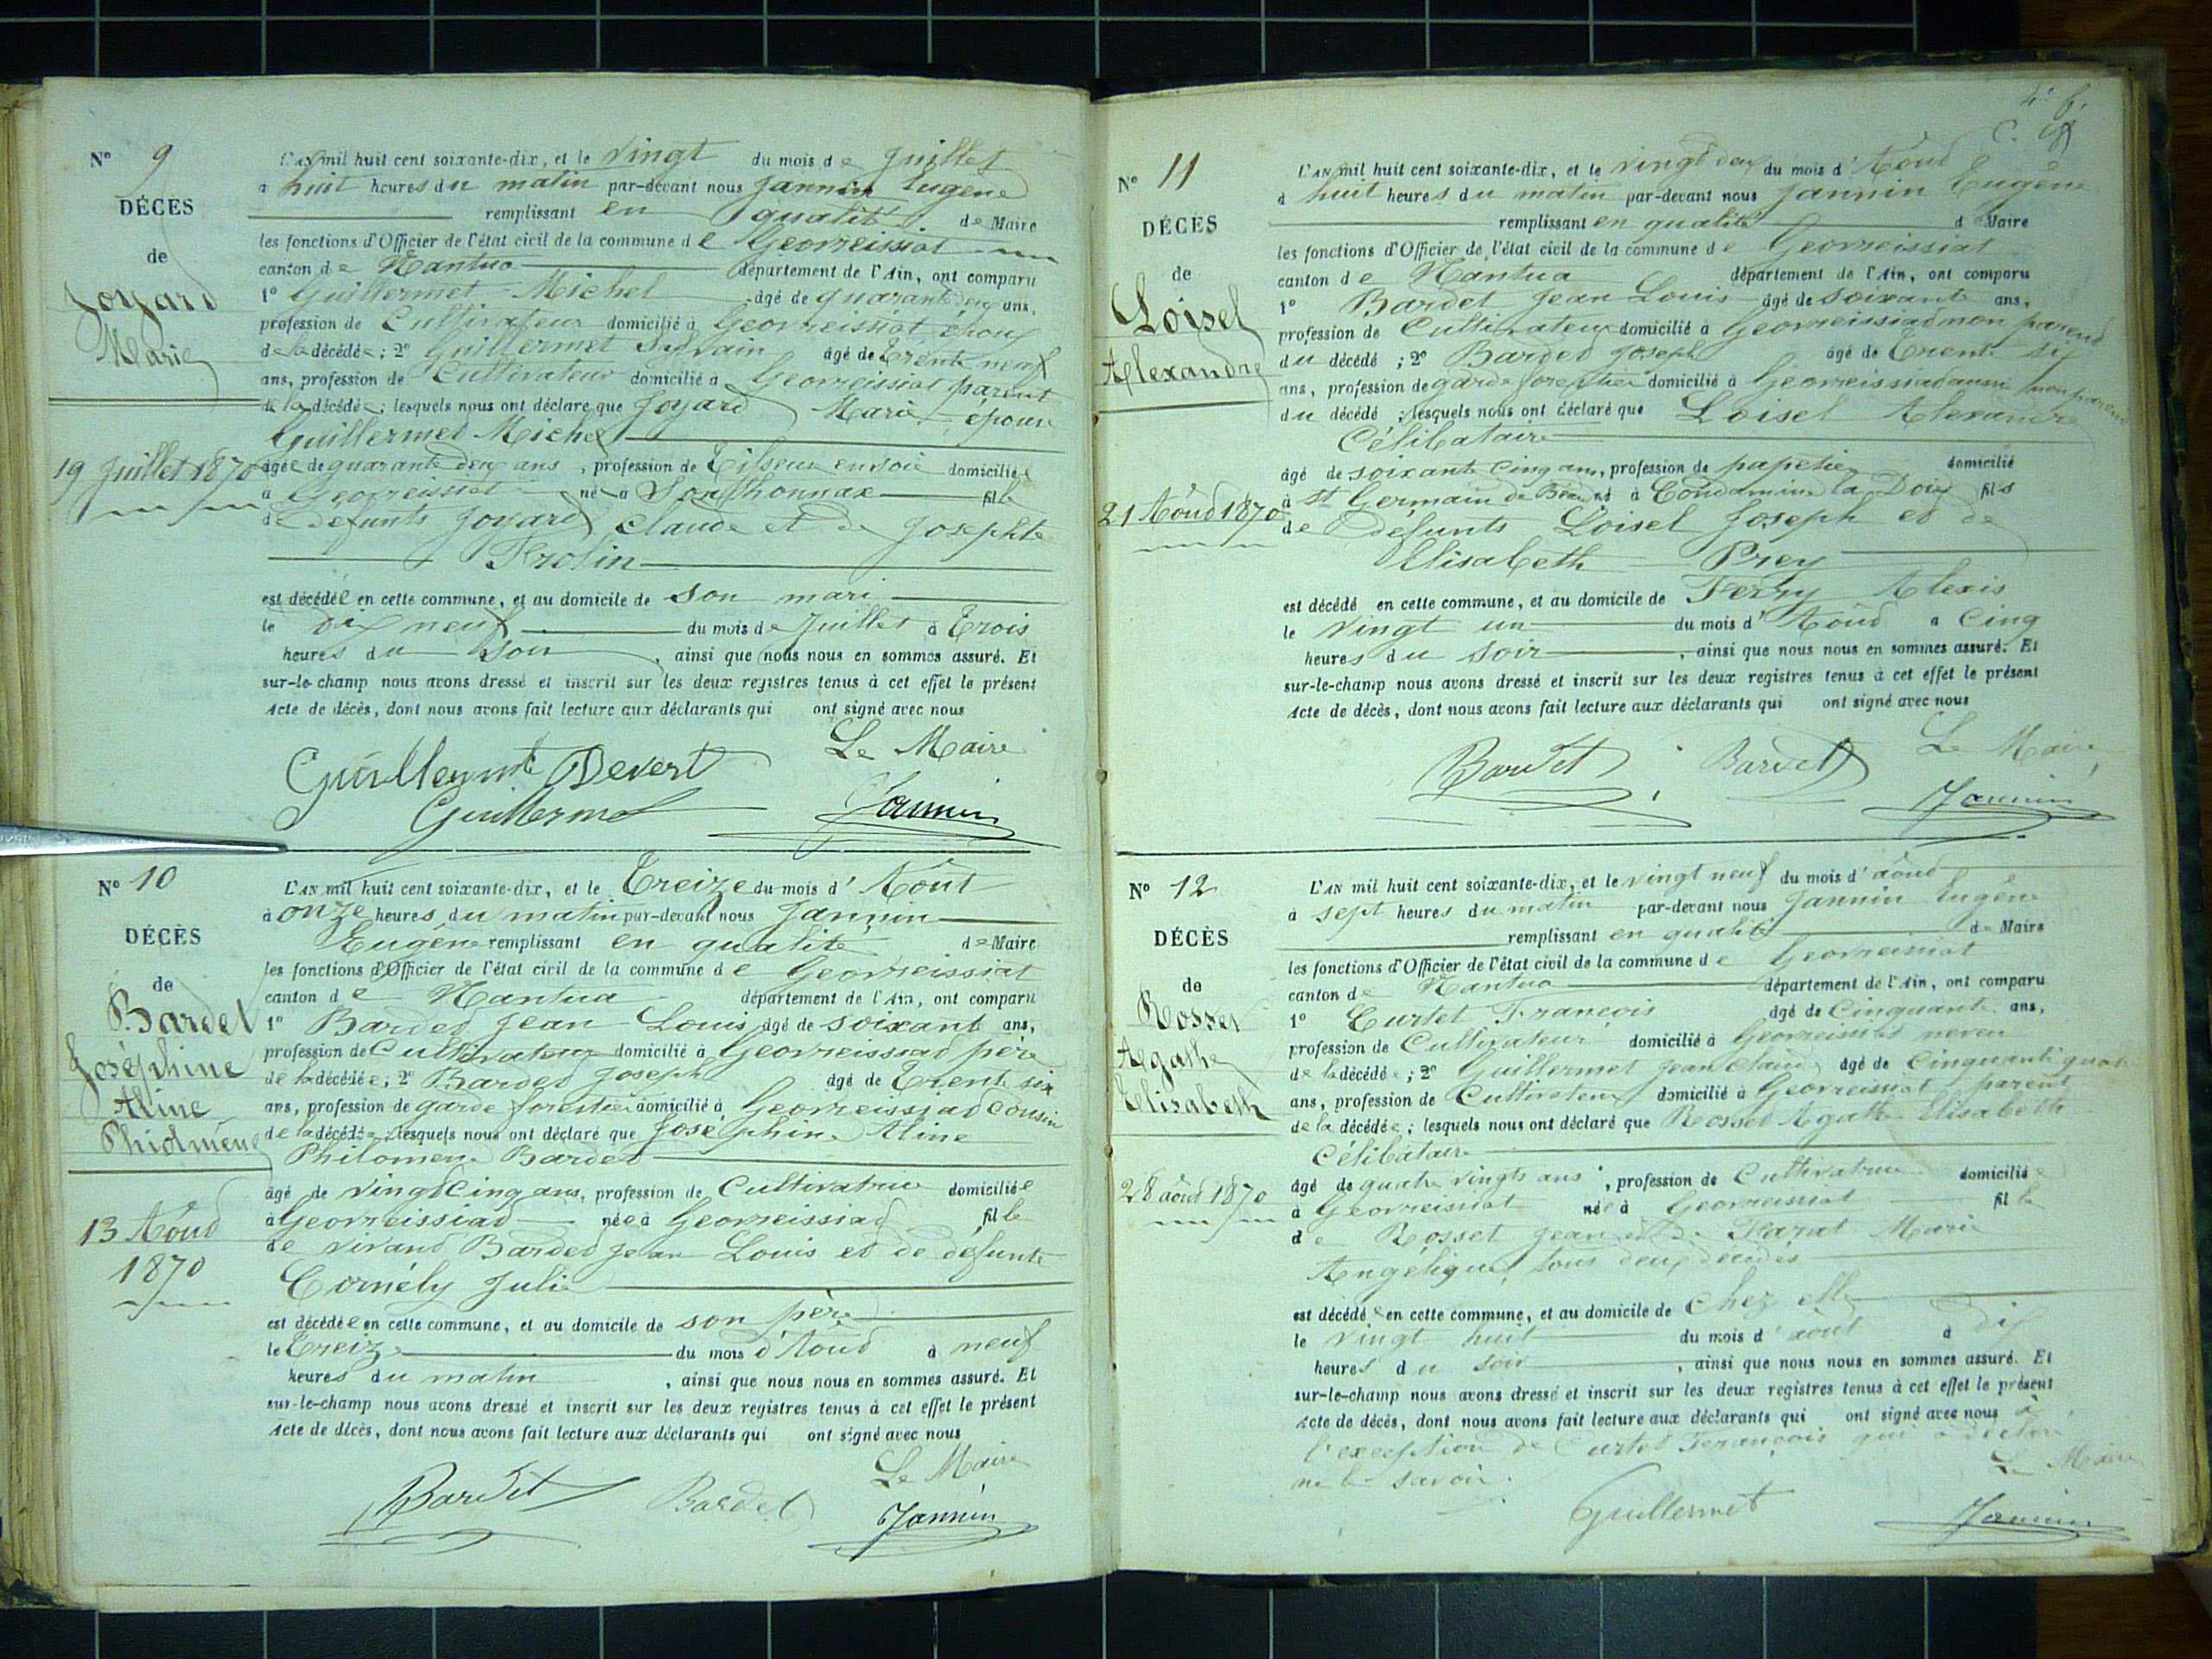 N° 9
DÉCÈS
de
Joyard
Marie
19 Juillet 1870
L'AN mil huit cent soixante-dix, et le vingt du mois de Juillet
à huit heures du matin par-devant nous Jannin Eugène
remplissant en qualité de Maire
les fonctions d'Officier de l'état civil de la commune de Georreissiat
canton de Nantua département de l'Ain, ont comparu
1° Guillermet Michel âgé de quarante deux ans,
profession de Cultivateur domicilié à Georreissiat époux
de la décédée; 2° Guillermet Sylvain âgé de Trente neuf
ans, profession de Cultivateur domicilié à Georreissiat parent
de la décédée; lesquels nous ont déclaré que Joyard Marie épouse
Guillermet Michel
âgée de quarante deux ans, profession de Tisseuse en soie domiciliée
à Georreissiat née à Sonthonnax fille
de défunts Joyard Claude et de Josephte
Frolin
est décédée en cette commune, et au domicile de son mari
le Dix neuf du mois de Juillet à Trois
heures du soir, ainsi que nous nous en sommes assuré. Et
sur-le-champ nous avons dressé et inscrit sur les deux registres tenus à cet effet le présent
Acte de décès, dont nous avons fait lecture aux déclarants qui ont signé avec nous
Le Maire
Guillermet
Guillermet Jannin
N° 10
DÉCÈS
de
Bardet
Joséphine
Aline
Phiolmène
13 Aôud
1870
L'AN mil huit cent soixante-dix, et le Treize du mois d'Aôut
à onze heures du matin par-devant nous Jannin
Eugène remplissant en qualité de Maire
les fonctions d'Officier de l'état civil de la commune de Georreissiat
canton de Nantua département de l'Ain, ont comparu
1° Bardet Jean Louis âgé de soixante ans,
profession de Cultivateur domicilié à Georreissiad père
de la décédée; 2° Bardet Joseph âgé de Trente six
ans, profession de garde forestier domicilié à Georreissiad cousin
de la décédée; lesquels nous ont déclaré que Joséphine Aline
Philomène Bardet
âgé de vingt cinq ans, profession de Cultivatrice domiciliée
à Georreissiad née à Georreissiad fille
de vivand Bardet Jean Louis et de défunte
Cornély Julie
est décédée en cette commune, et au domicile de son père
le Treize du mois d'Aôud à neuf
heures du matin, ainsi que nous nous en sommes assuré. Et
sur-le-champ nous avons dressé et inscrit sur les deux registres tenus à cet effet le présent
Acte de décès, dont nous avons fait lecture aux déclarants qui ont signé avec nous
Le Maire
Bardet Bardet Jannin
N° 11
DÉCÈS
de
Loisel
Alexandre
21 Aôud 1870
L'AN mil huit cent soixante-dix, et le vingt deux du mois d'Aôud
à huit heures du matin par-devant nous Jannin Eugène
remplissant en qualité d Maire
les fonctions d'Officier de l'état civil de la commune de Georreissiat
canton de Nantua département de l'Ain, ont comparu
1° Bardet Jean Louis âgé de soixante ans,
profession de Cultivateur domicilié à Georreissiad non parend
du décédé; 2° Bardet Joseph âgé de Trente six
ans, profession de garde forestier domicilié à Georreissiad aussi non parend
du décédé; lesquels nous ont déclaré que Loisel Alexandre
Célibataire
âgé de soixante Cinq ans, profession de papetier domicilié
à St Germain de né à Condamine la Doix fils
de Défunts Loisel Joseph et de
Elisabeth Prey
est décédé en cette commune, et au domicile de Ferry Alexis
le vingt un du mois d'Aôud à Cinq
heures du soir, ainsi que nous nous en sommes assuré. Et
sur-le-champ nous avons dressé et inscrit sur les deux registres tenus à cet effet le présent
Acte de décès, dont nous avons fait lecture aux déclarants qui ont signé avec nous
Le Maire
Bardet Bardet Jannin
N° 12
DÉCÈS
de
Rosset
Agathe
Elisabeth
28 aôud 1870
L'AN mil huit cent soixante-dix, et le vingt neuf du mois d'aôud
à sept heures du matin par-devant nous Jannin Eugène
remplissant en qualité de Maire
les fonctions d'Officier de l'état civil de la commune de Georreissiat
canton de Nantua département de l'Ain, ont comparu
1° Curtet François âgé de Cinquante ans,
profession de Cultivateur domicilié à Georreissiat neveu
de la décédée; 2° Guillermet Jean Claude âgé de Cinquante quatre
ans, profession de Cultivateur domicilié à Georreissiat parent
de la décédée; lesquels nous ont déclaré que Rosset Agathe Elisabeth
Célibataire
âgé de quatre vingts ans, profession de Cultivatrice domiciliée
à Georreissiat née à Georreissiat fille
de Rosset Jean et de Marie
Angélique, tous deux décédés
est décédée en cette commune, et au domicile de Chez elle
le vingt huit du mois d'aout à dix
heures du soir, ainsi que nous nous en sommes assuré. Et
sur-le-champ nous avons dressé et inscrit sur les deux registres tenus à cet effet le présent
Acte de décès, dont nous avons fait lecture aux déclarants qui ont signé avec nous à
l'exception de Curtet François qui a déclaré
ne le savoir.
Le Maire
Guillermet Jannin